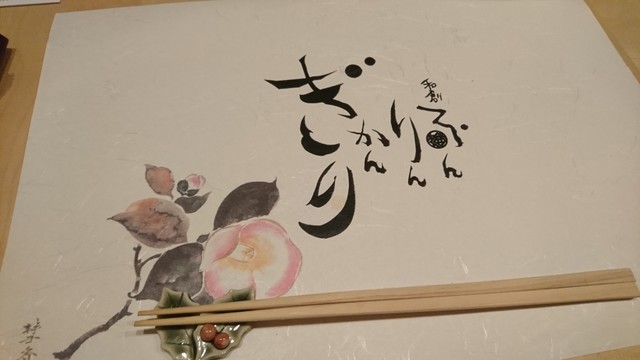 和創
ぶん
りん
かん
ぎとり